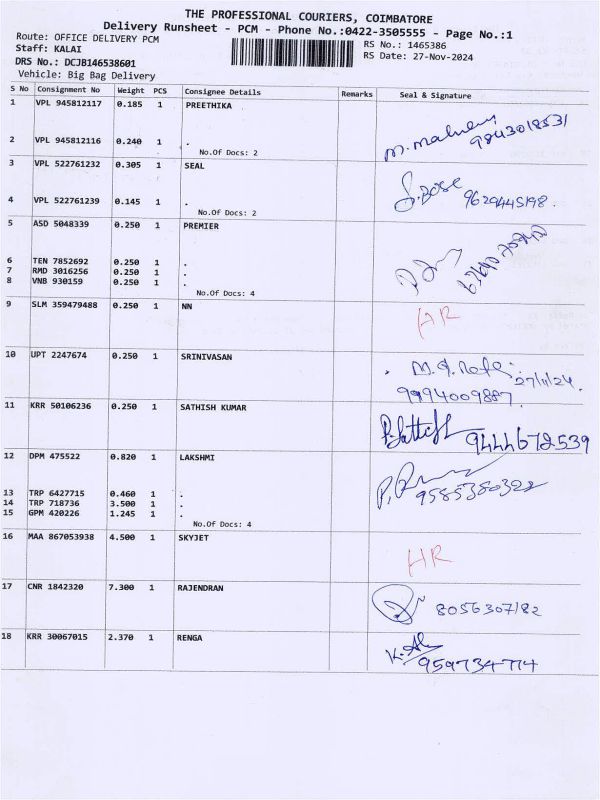 THE PROFESSIONAL COURIERS, COIMBATORE
Delivery Runsheet - PCM - Phone No.:0422-3505555 - Page No.:1
Route: OFFICE DELIVERY PCM RS No.: 1465386
Staff: KALAI RS Date: 27-Nov-2024
DRS No.: DCJB146538601
Vehicle: Big Bag Delivery
S No Consignment No Weight PCS Consignee Details Remarks Seal & Signature
1 VPL 945812117 0.185 1 PREETHIKA
9843018531
2 VPL 945812116 0.240 1 .
No.Of Docs: 2
3 VPL 522761232 0.305 1 SEAL
S. Bose 9629445198.
4 VPL 522761239 0.145 1 .
No.Of Docs: 2
5 ASD 5048339 0.250 1 PREMIER
6 TEN 7852692 0.250 1 .
7 RMD 3016256 0.250 1 .
8 VNB 930159 0.250 1 .
No.Of Docs: 4
9 SLM 359479488 0.250 1 NN
HR
10 UPT 2247674 0.250 1 SRINIVASAN
27/11/24.
9994009887.
11 KRR 50106236 0.250 1 SATHISH KUMAR
9444672539
12 DPM 475522 0.820 1 LAKSHMI
9585380322
13 TRP 6427715 0.460 1 .
14 TRP 718736 3.500 1 .
15 GPM 420226 1.245 1 .
No.Of Docs: 4
16 MAA 867053938 4.500 1 SKYJET
HR
17 CNR 1842320 7.300 1 RAJENDRAN
8056307182
18 KRR 30067015 2.370 1 RENGA